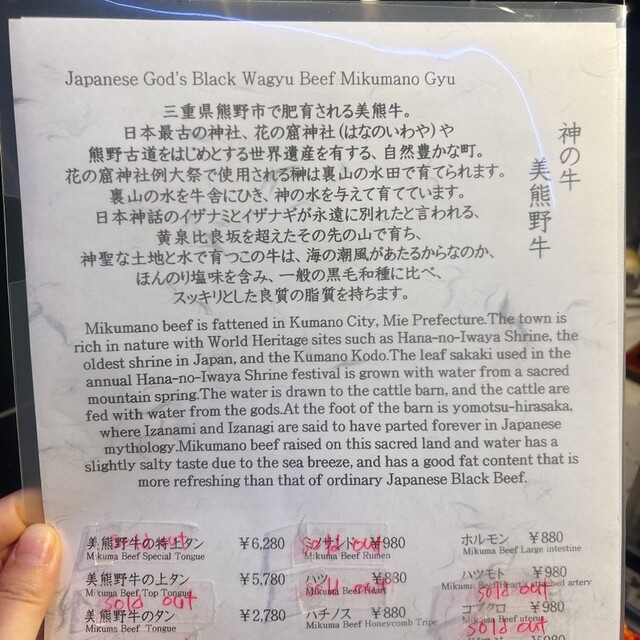 Japanese God's Black Wagyu Beef Mikumano Gyu
神の牛
美熊野牛
三重県熊野市で肥育される美熊牛。
日本最古の神社、花の窟神社(はなのいわや)や
熊野古道をはじめとする世界遺産を有する、自然豊かな町。
花の窟神社例大祭で使用される榊は裏山の水田で育てられます。
裏山の水を牛舎にひき、神の水を与えて育てています。
日本神話のイザナミとイザナギが永遠に別れたと言われる、
黄泉比良坂を超えたその先の山で育ち、
神聖な土地と水で育つこの牛は、海の潮風があたるからなのか、
ほんのり塩味を含み、一般の黒毛和種に比べ、
スッキリとした良質の脂質を持ちます。
Mikumano beef is fattened in Kumano City, Mie Prefecture.The town is
rich in nature with World Heritage sites such as Hana-no-Iwaya Shrine, the
oldest shrine in Japan, and the Kumano Kodo.The leaf sakaki used in the
annual Hana-no-Iwaya Shrine festival is grown with water from a sacred
mountain spring.The water is drawn to the cattle barn, and the cattle are
fed with water from the gods.At the foot of the barn is yomotsu-hirasaka,
where Izanami and Izanagi are said to have parted forever in Japanese
mythology.Mikumano beef raised on this sacred land and water has a
slightly salty taste due to the sea breeze, and has a good fat content that is
more refreshing than that of ordinary Japanese Black Beef.
美熊野牛の特上タン ¥6,280
sold out
Mikuma Beef Special Tongue
美熊野牛の上タン ¥5,780
Mikuma Beef Top Tongue
sold out
美熊野牛のタン ¥2,780
Mikuma Beef Tongue
ミノサンド ¥980
sold out
Mikuma Beef Rumen
ハツ ¥880
sold out
Mikuma Beef Heart
ハチノス ¥880
Mikuma Beef Honeycomb Tripe
ホルモン ¥880
Mikuma Beef Large intestine
ハツモト ¥980
Mikuma Beef artery
sold out
コブクロ ¥980
Mikuma Beef uterus
sold out